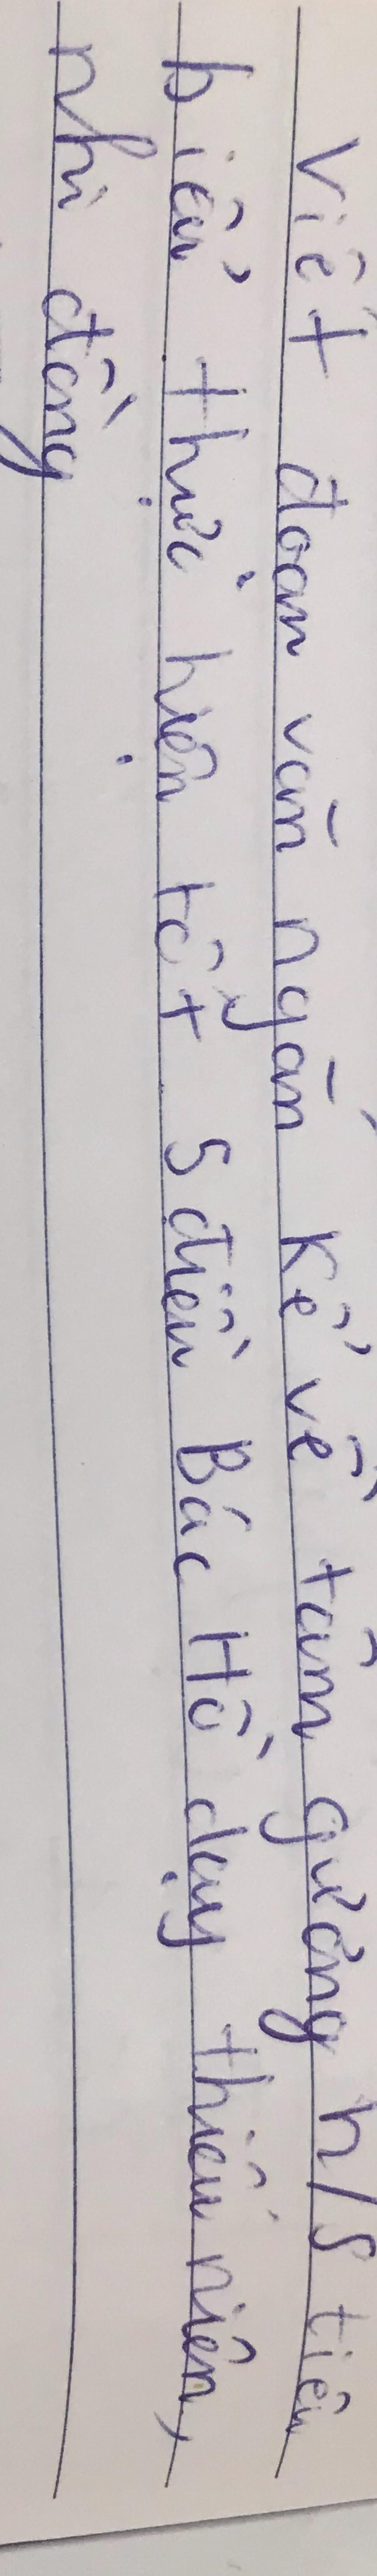 Viết đoạn văn ngắn kể về tấm gương h/s tiêu
biểu thực hiện tốt 5 điều Bác Hồ dạy thiếu niên,
nhi đồng